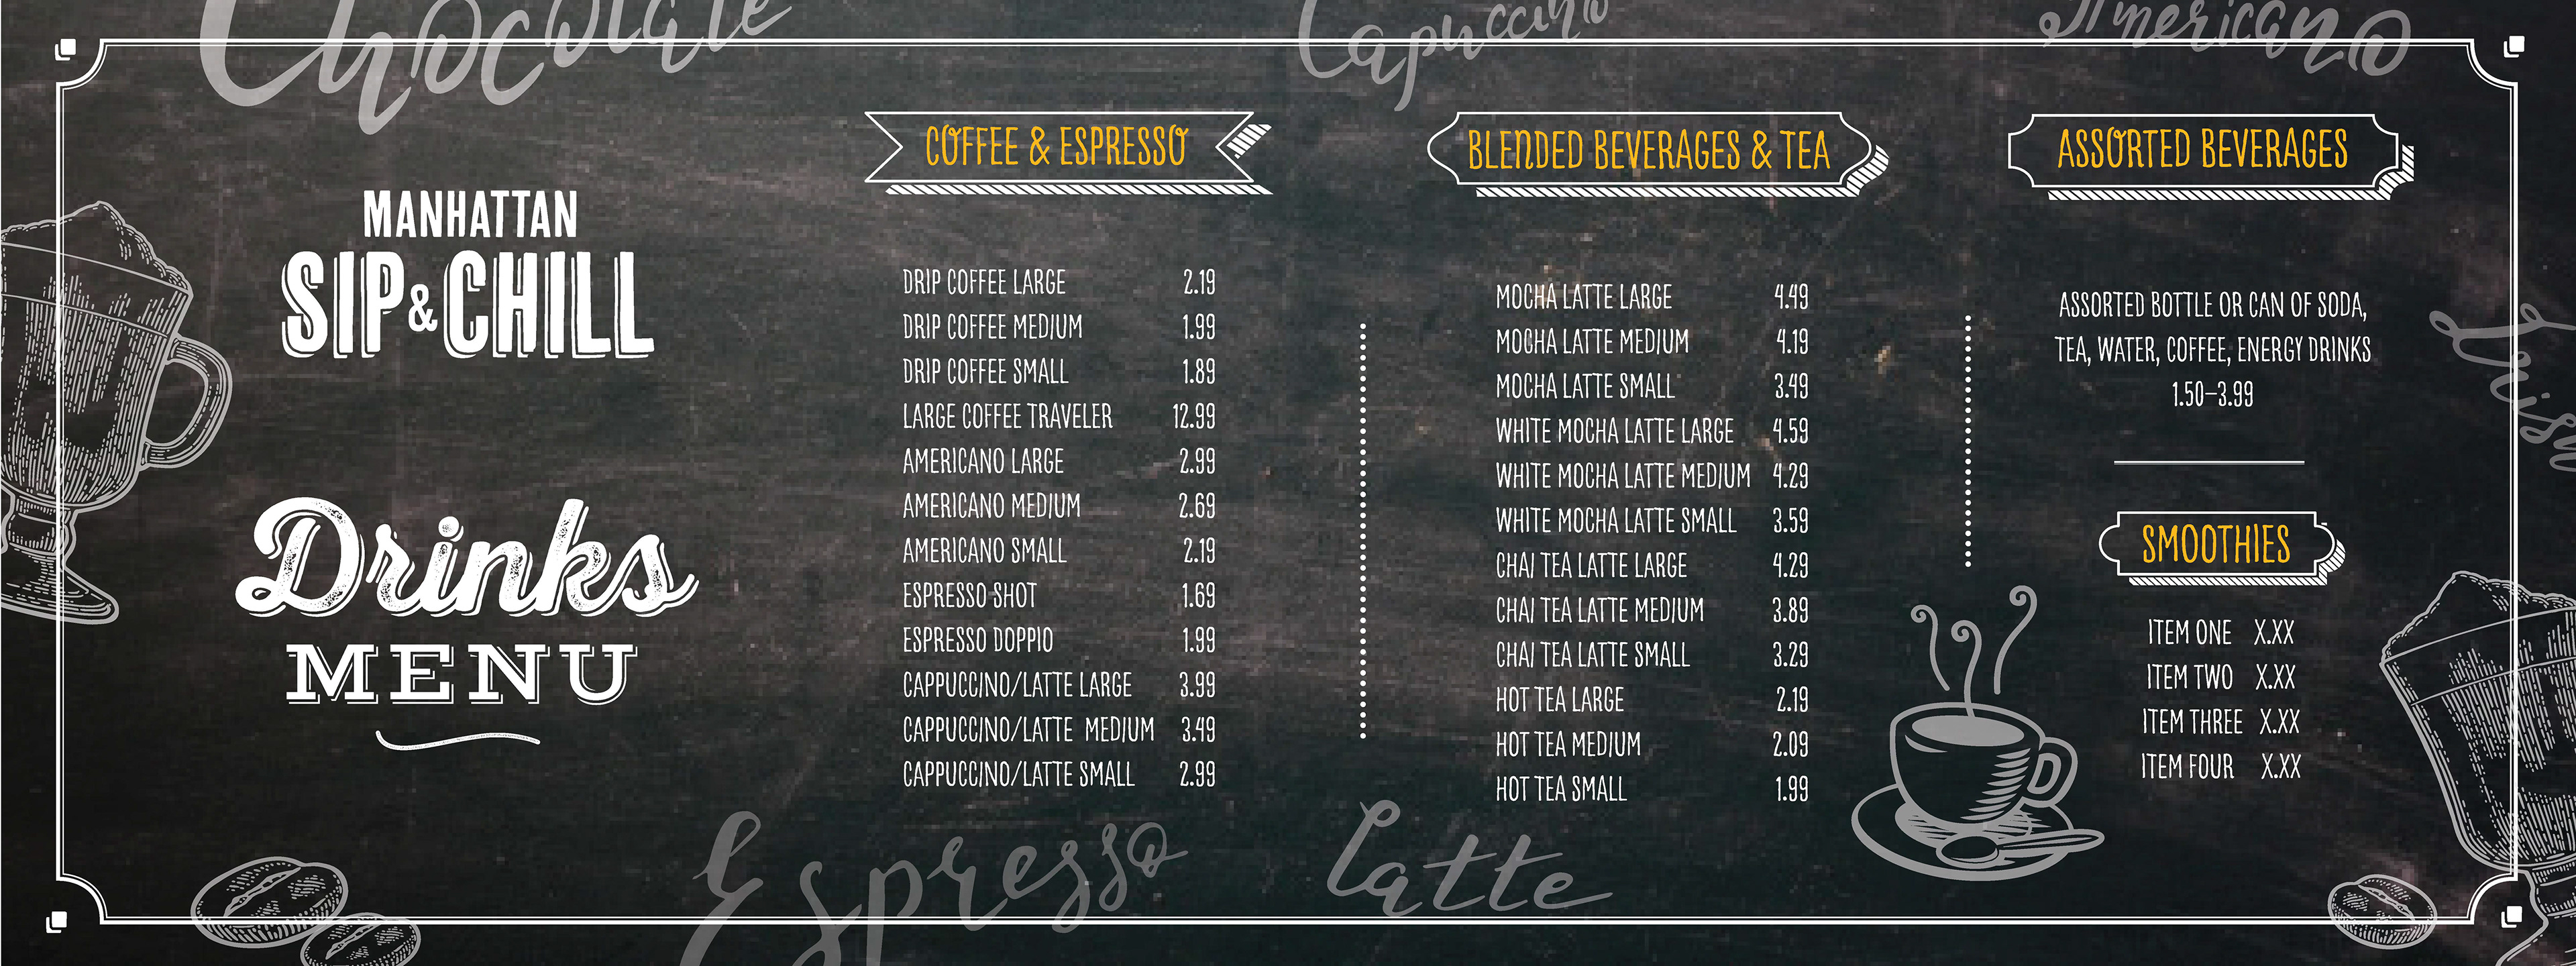 Chocolate
Capuccino
Americano
MANHATTAN
SIP & CHILL
Drinks
MENU
COFFEE & ESPRESSO
DRIP COFFEE LARGE 2.19
DRIP COFFEE MEDIUM 1.99
DRIP COFFEE SMALL 1.89
LARGE COFFEE TRAVELER 12.99
AMERICANO LARGE 2.99
AMERICANO MEDIUM 2.69
AMERICANO SMALL 2.19
ESPRESSO SHOT 1.69
ESPRESSO DOPPIO 1.99
CAPPUCCINO/LATTE LARGE 3.99
CAPPUCCINO/LATTE MEDIUM 3.49
CAPPUCCINO/LATTE SMALL 2.99
BLENDED BEVERAGES & TEA
MOCHA LATTE LARGE 4.49
MOCHA LATTE MEDIUM 4.19
MOCHA LATTE SMALL 3.49
WHITE MOCHA LATTE LARGE 4.59
WHITE MOCHA LATTE MEDIUM 4.29
WHITE MOCHA LATTE SMALL 3.59
CHAI TEA LATTE LARGE 4.29
CHAI TEA LATTE MEDIUM 3.89
CHAI TEA LATTE SMALL 3.29
HOT TEA LARGE 2.19
HOT TEA MEDIUM 2.09
HOT TEA SMALL 1.99
ASSORTED BEVERAGES
ASSORTED BOTTLE OR CAN OF SODA,
TEA, WATER, COFFEE, ENERGY DRINKS
1.50–3.99
SMOOTHIES
ITEM ONE X.XX
ITEM TWO X.XX
ITEM THREE X.XX
ITEM FOUR X.XX
Espresso
Latte